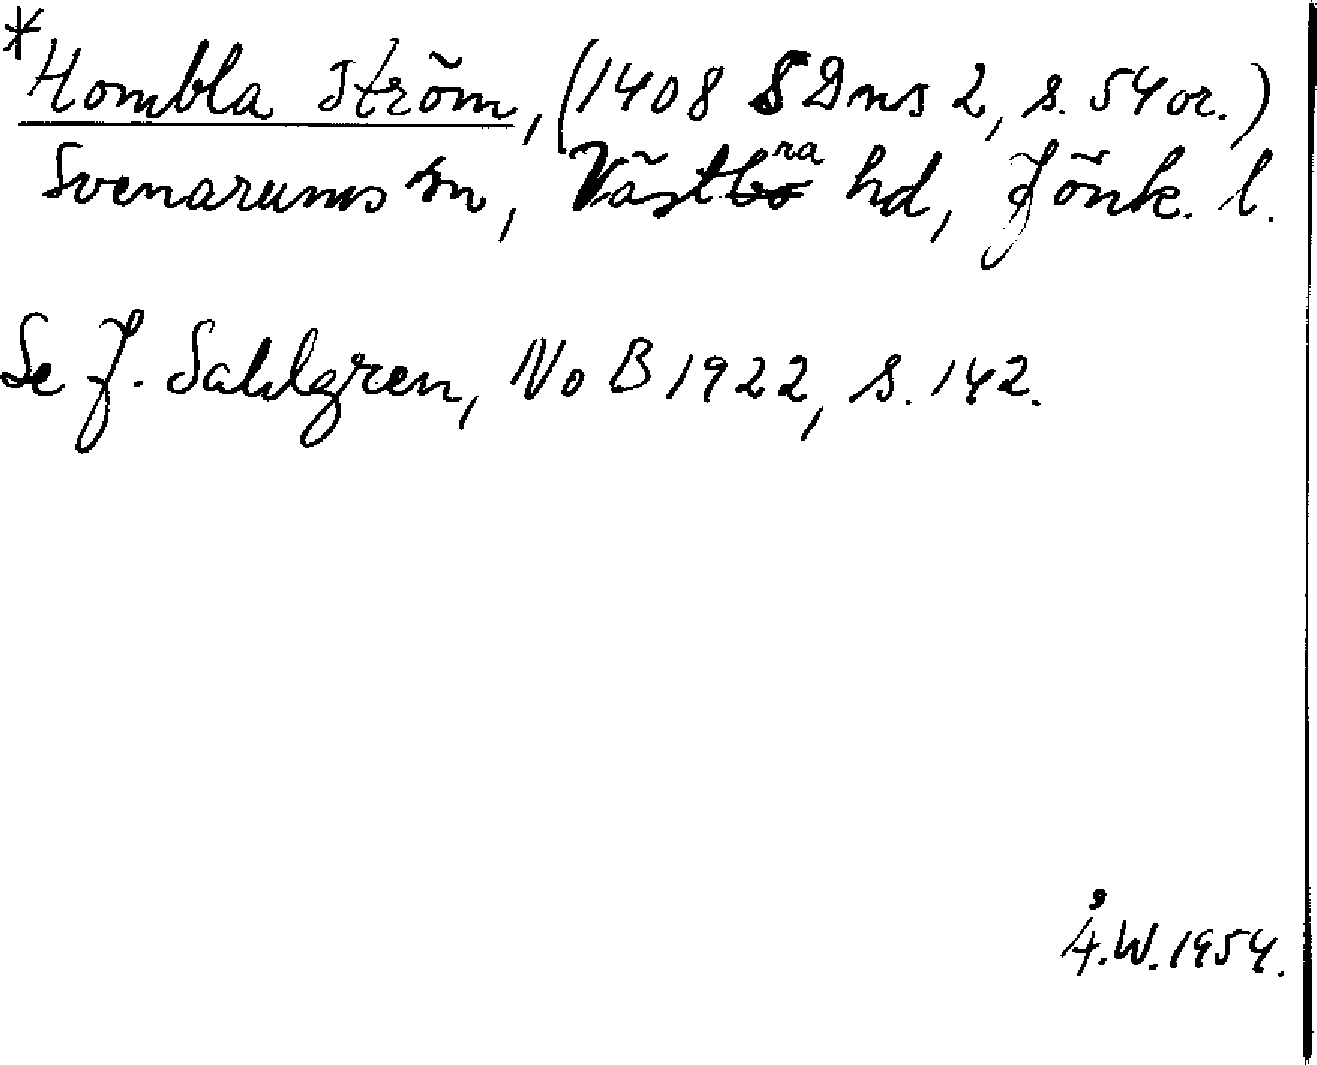 *Hombla Ström, (1408 SDns 2, s. 54 or.)
Svenarums sn, Västra hd, Jönk. l.
Se J. Sahlgren, NoB 1922, s. 142.
Å.W. 1954.